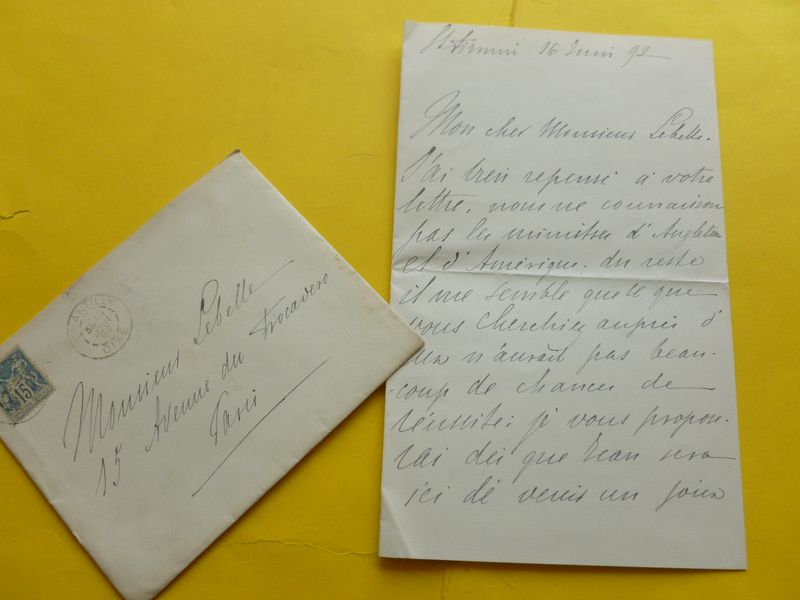 St Firmin 16 Juin 92
Mon cher Monsieur Lebelle.
J'ai bien repensé à votre
lettre, nous ne connaisson
pas les ministres d'Angleterre
et d'Amérique. du reste
il me semble que le que
vous cherchiez auprès d'
eux n'aurait pas beau-
-coup de chances de
réussite; je vous propose-
rai dès que Jean sera
ici de venir un jour
Monsieur Lebelle
15 Avenue du Trocadero
Paris
CHANTILLY
OISE
15